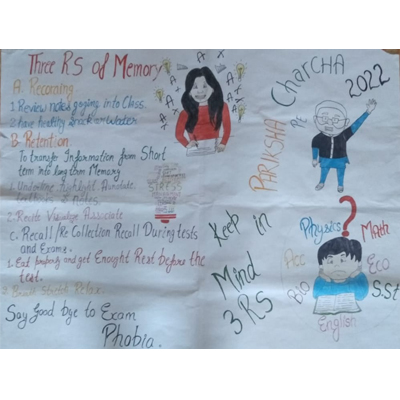 Three RS of Memory
A. Recording
1. Review notes going into Class
2. have healthy Snack or Water
B. Retention
To transfer Information from Short
term into long term Memory
1. Underline Highlight Annotate
2. Recite Visualize Associate
C. Recall/Re Collection Recall During tests
and Exams.
1. Eat properly and get Enought Rest before the
test.
Say Good bye to Exam
Phobia.
STRESS
A
X
PARIKSHA
Pe
CharCHA
2022
Keep in
Mind
3RS
?
Physics
Math
Acc
Eco
Bio
S.St
English